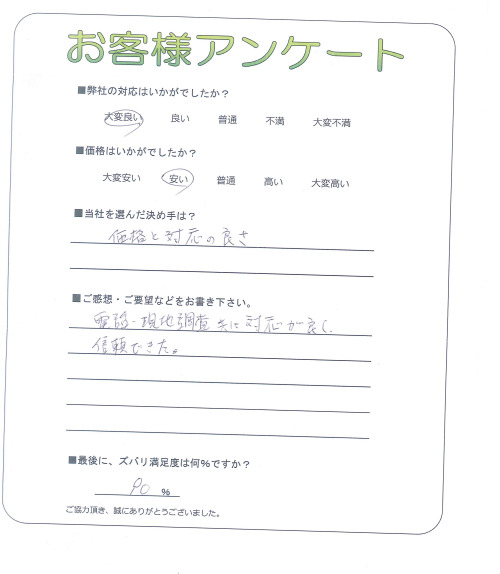 お客様アンケート
■弊社の対応はいかがでしたか？
大変良い 良い 普通 不満 大変不満
■価格はいかがでしたか？
大変安い 安い 普通 高い 大変高い
■当社を選んだ決め手は？
価格と対応の良さ
■ご感想・ご要望などをお書き下さい。
電話・現地調査共に対応が良く、
信頼できた。
■最後に、ズバリ満足度は何%ですか？
90 %
ご協力頂き、誠にありがとうございました。